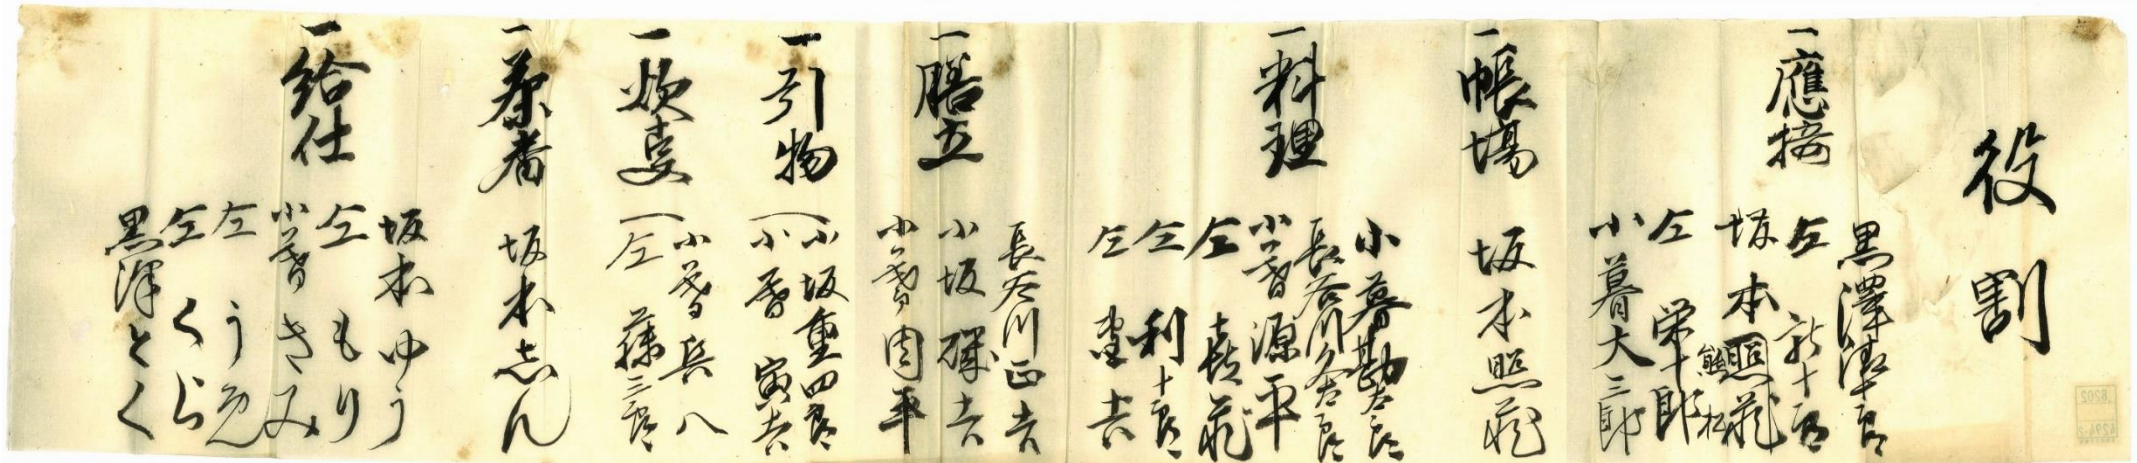 役割
一應接
黒澤清十郎
仝 新十郎
坂本照蔵
熊松
仝 栄十郎
小暮大三郎
一帳場
坂本照蔵
一料理
小暮勘太郎
長谷川久太郎
小暮源平
仝 喜蔵
仝 利十郎
仝 吉
一膳立
長谷川正吉
小坂磯吉
小暮周平
一引物
小坂重四郎
小暮 寅吉
一炊事
小暮兵八
仝 藤三郎
一茶番
坂本志ん
一給仕
坂本ゆう
仝 もり
小暮きみ
仝 うめ
仝 くら
黒澤とく